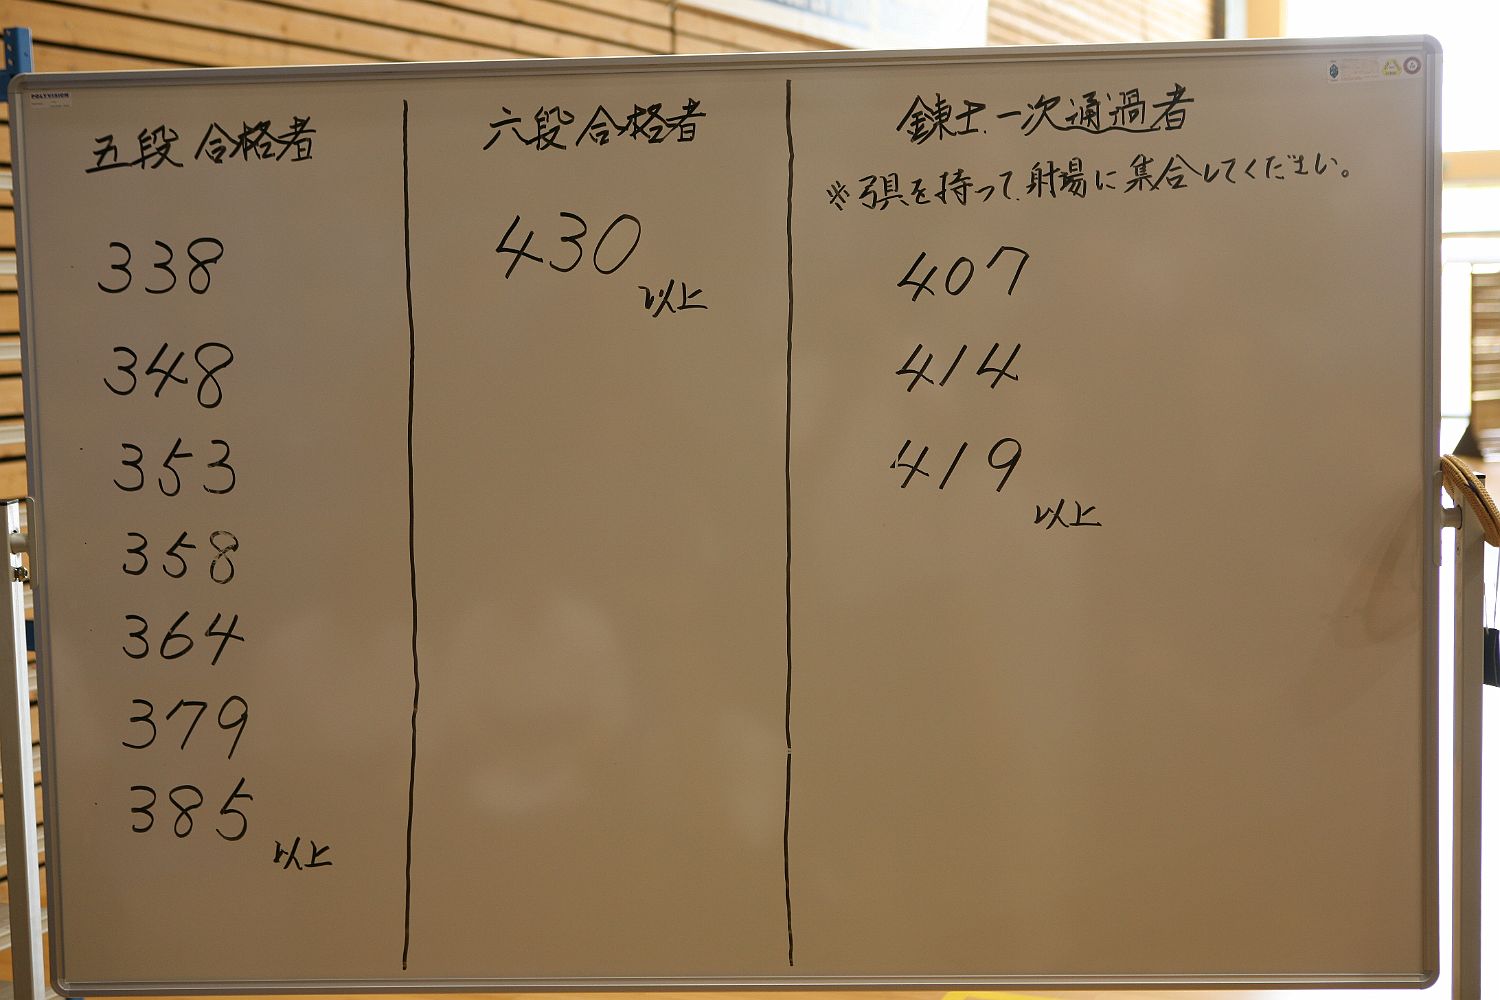 POLYVISION
五段 合格者
338
348
353
358
364
379
385
以上
六段 合格者
430
以上
錬士 一次通過者
※弓具を持って、射場に集合してください。
407
414
419
以上